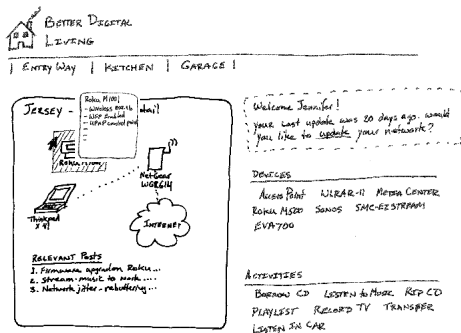 Better Digital
Living
| Entry Way | Kitchen | Garage |
Jersey -
Roku M1001
- Wireless 802.11b
- WEP Enabled
- UPnP control point
Roku
NetGear
WGR614
Thinkpad
X41
Internet
Relevant Posts
1. Firmware upgrade on Roku...
2. Stream-music to work....
3. Network jitter-rebuffering...
Welcome Jennifer!
your last update was 20 days ago. would
you like to update your network?
Devices
Audio Point WLRAR-11 Media Center
Roku M500 Sonos SMC-EZSTREAM
EVA700
Activities
Borrow CD Listen to Music Rip CD
Playlist Record TV Transfer
Listen in Car